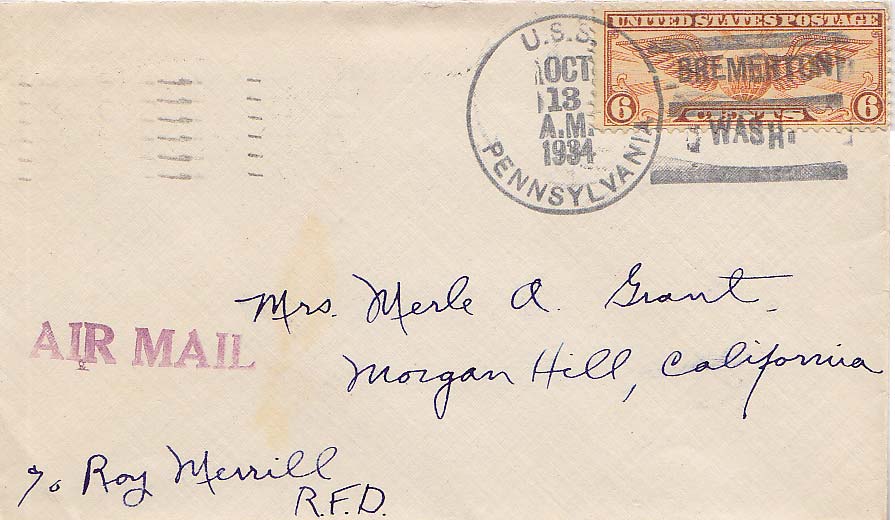 UNITED STATES POSTAGE
6 CENTS 6
U.S.S. PENNSYLVANIA
OCT
13
A.M.
1934
BREMERTON
WASH.
Mrs. Merle A. Grant
Morgan Hill, California
AIR MAIL
c/o Roy Merrill
R.F.D.